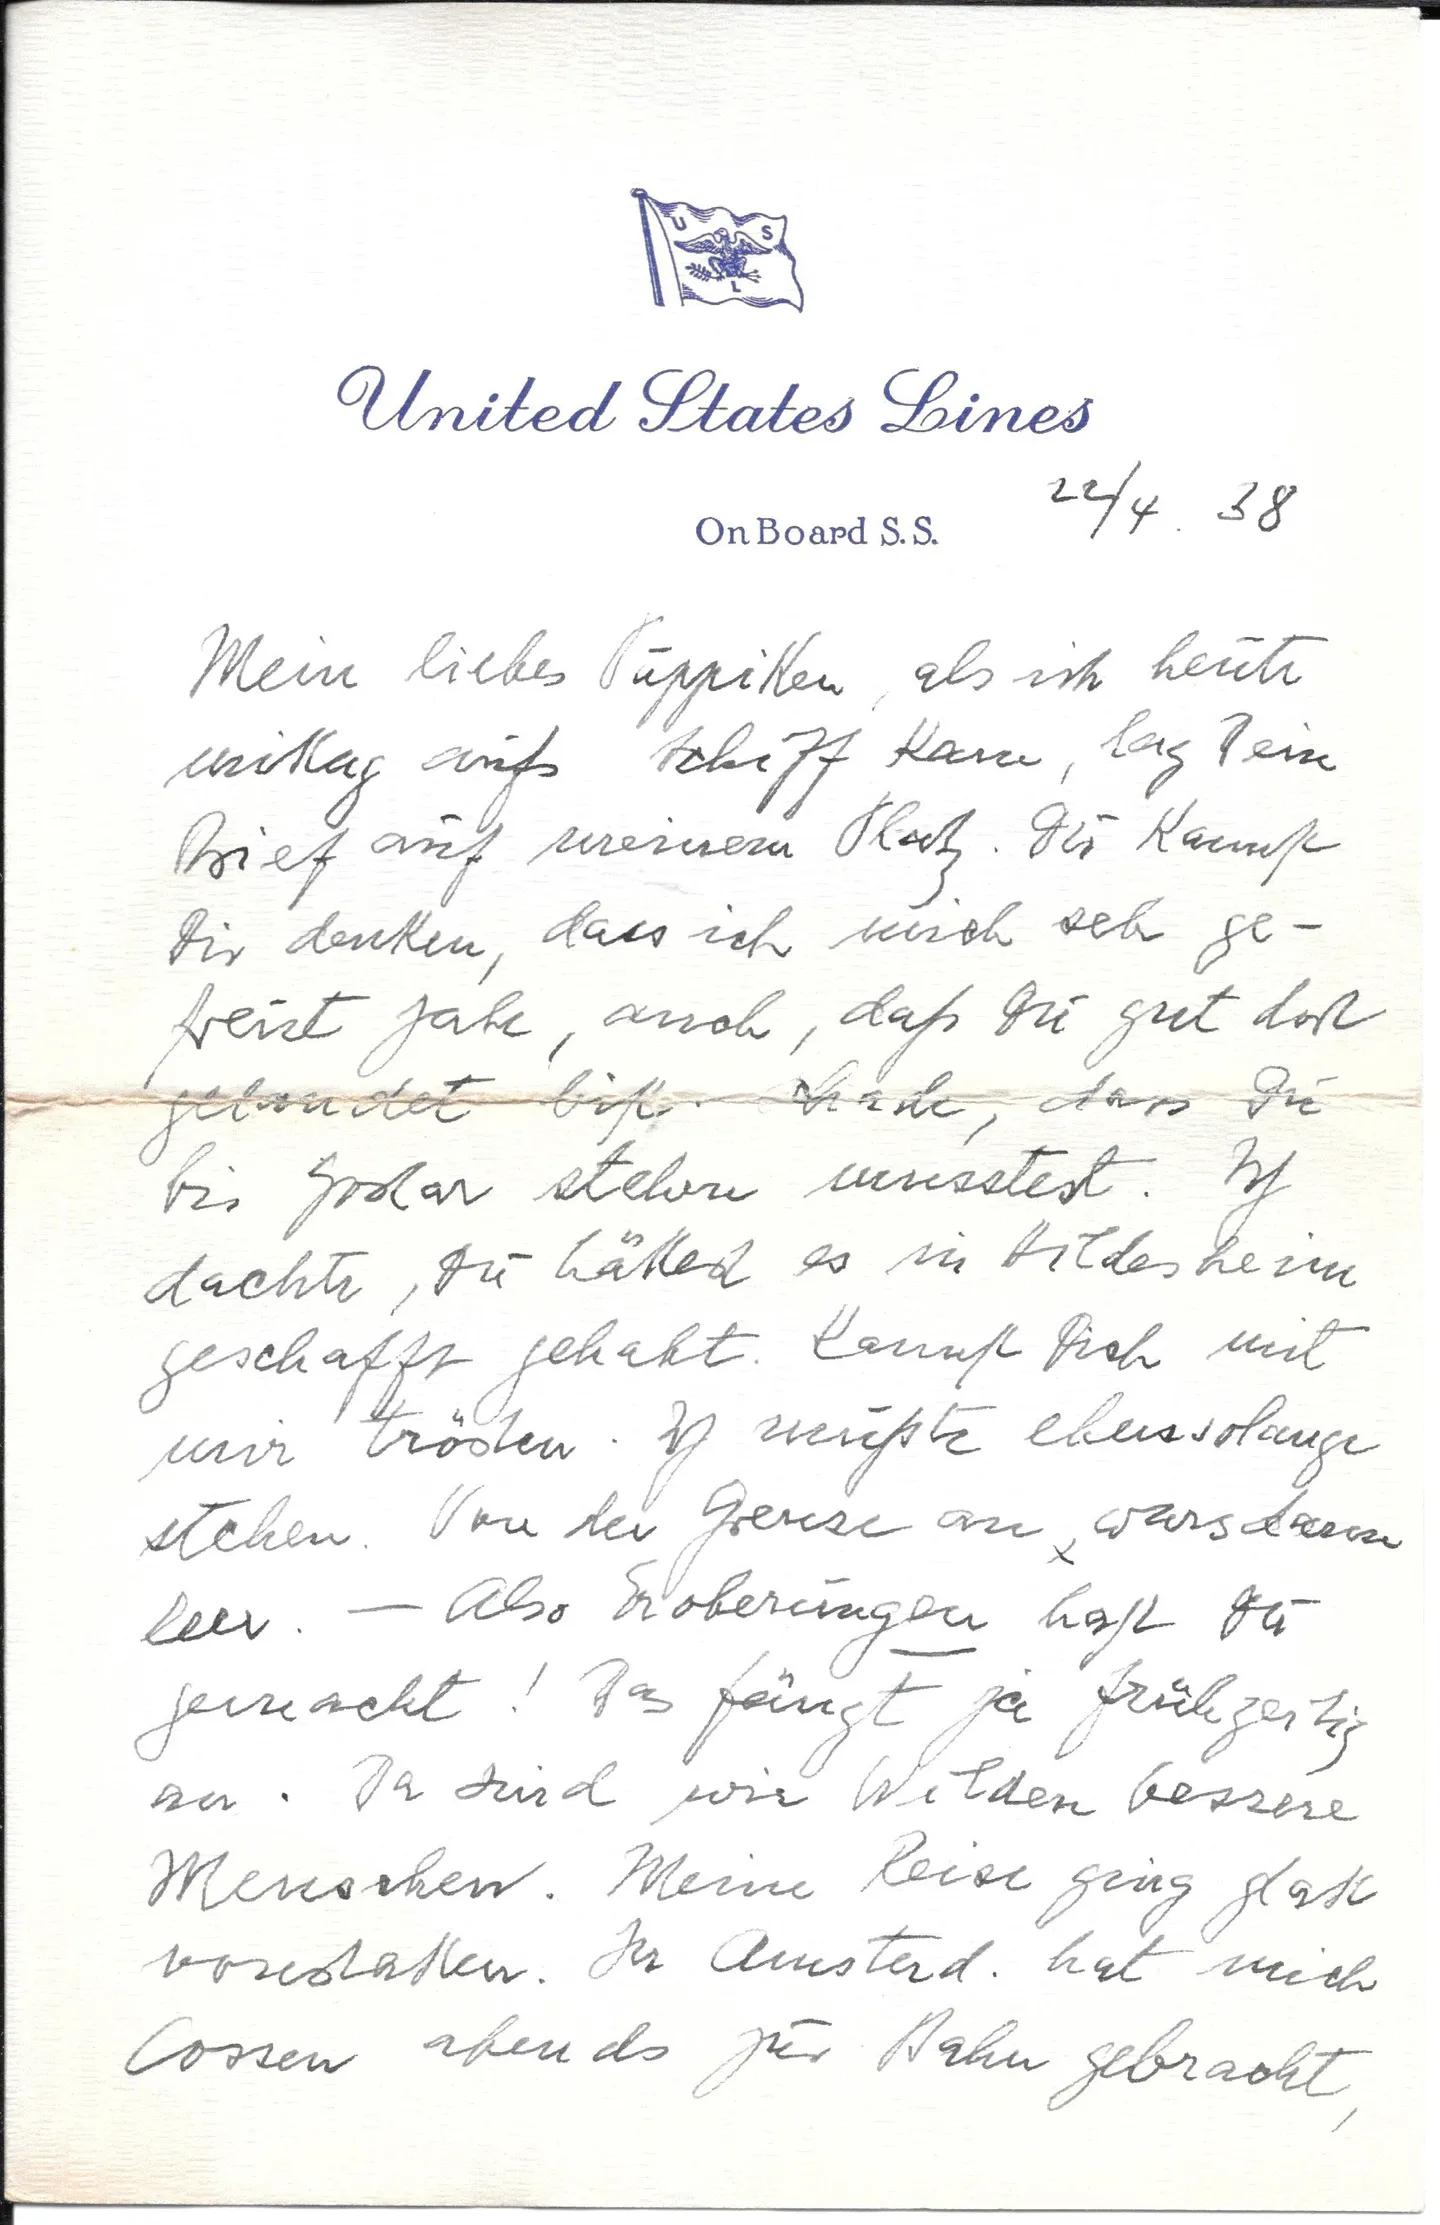 U S L
United States Lines
On Board S.S.
22/4. 38
Mein liebes Püppiken, als ich heute
mittag aufs Schiff kam, lag Dein
Brief auf meinem Platz. Du kannst
Dir denken, dass ich mich sehr ge-
freut habe, auch, daß Du gut dort
gelandet bist. Schade, dass Du
bis Goslar stehen musstest. Ich
dachte, Du hättest es in Hildesheim
geschafft gehabt. Kannst Dich mit
mir trösten. Ich mußte ebensolange
stehen. Von der Grenze an, wars dann
leer. — Also Eroberungen hast Du
gemacht! Das fängt ja frühzeitig
an. Da sind wir Wilden bessere
Menschen. Meine Reise ging glatt
vonstatten. In Amsterd. hat mich
Cossen abends zur Bahn gebracht,